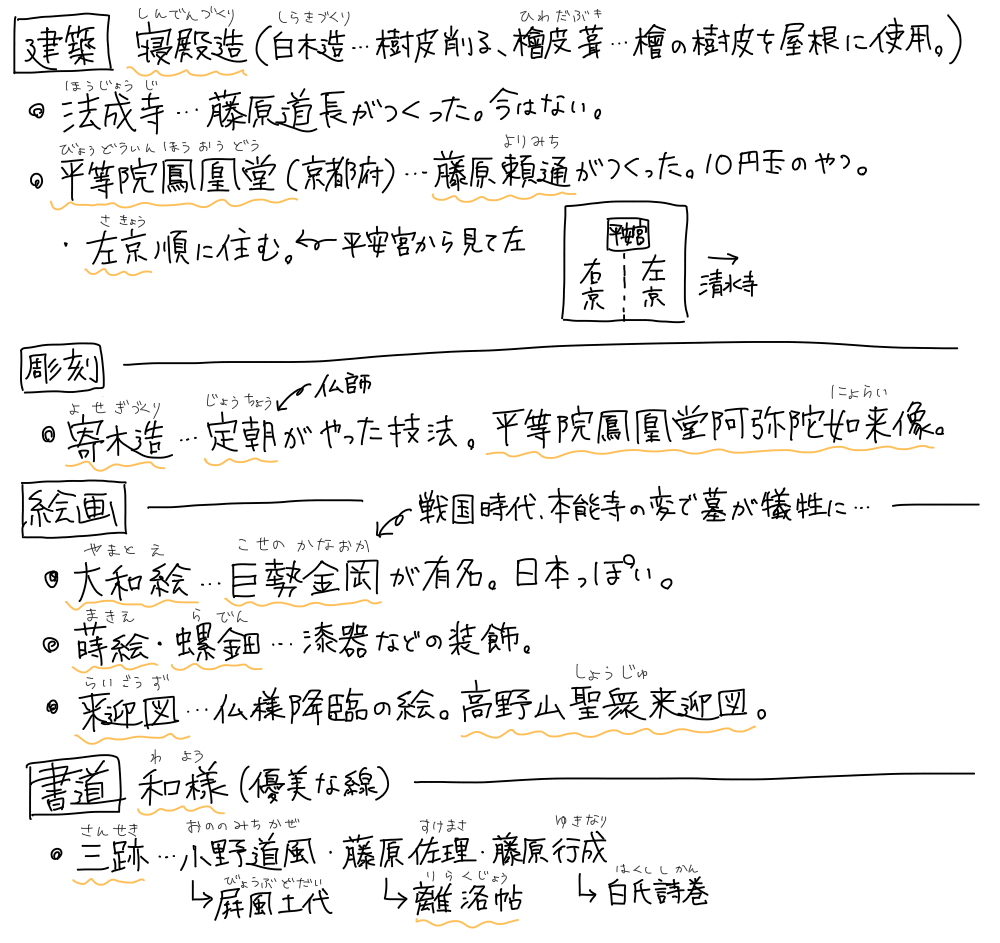 しんでんづくり しらきづくり ひわだぶき
建築 寝殿造(白木造…樹皮削る、檜皮葺…檜の樹皮を屋根に使用。)
ほうじょうじ
法成寺…藤原道長がつくった。今はない。
びょうどういんほうおうどう よりみち
平等院鳳凰堂(京都府)…藤原頼通がつくった。10円玉のやつ。
さきょう
・左京順に住む。←平安宮から見て左
平安宮
右京 左京
→清水寺
彫刻
仏師
よせぎづくり じょうちょう にょらい
寄木造…定朝がやった技法。平等院鳳凰堂阿弥陀如来像。
絵画
戦国時代、本能寺の変で墓が犠牲に…
やまとえ こせのかなおか
大和絵…巨勢金岡が有名。日本っぽい。
まきえ らでん
蒔絵・螺鈿…漆器などの装飾。
らいごうず しょうじゅ
来迎図…仏様降臨の絵。高野山聖衆来迎図。
わよう
書道 和様(優美な線)
さんせき おののみちかぜ すけまさ ゆきなり
三跡…小野道風・藤原佐理・藤原行成
びょうぶどだい りらくじょう はくししかん
屛風土代 離洛帖 白氏詩巻